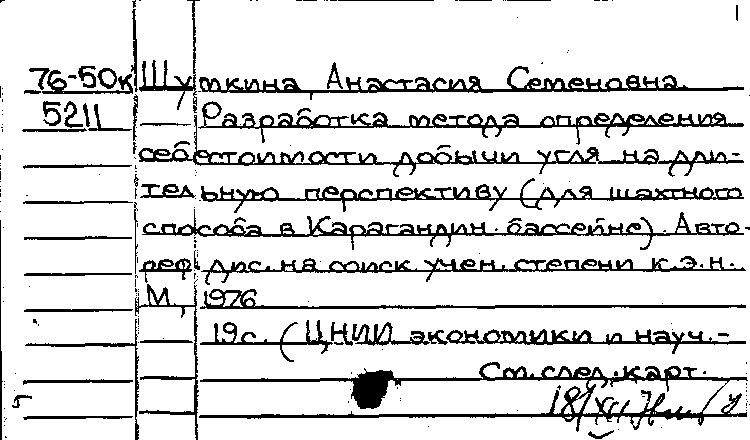 76-50к Шуткина, Анастасия Семеновна.
5211 Разработка метода определения
себестоимости добычи угля на дли-
тельную перспективу (для шахтного
способа в Карагандин. бассейне). Авто-
реф. дис. на соиск. учен. степени к.э.н.
М., 1976
19с. (ЦНИИ экономики и науч.-
См. след. карт.
5 18/XII